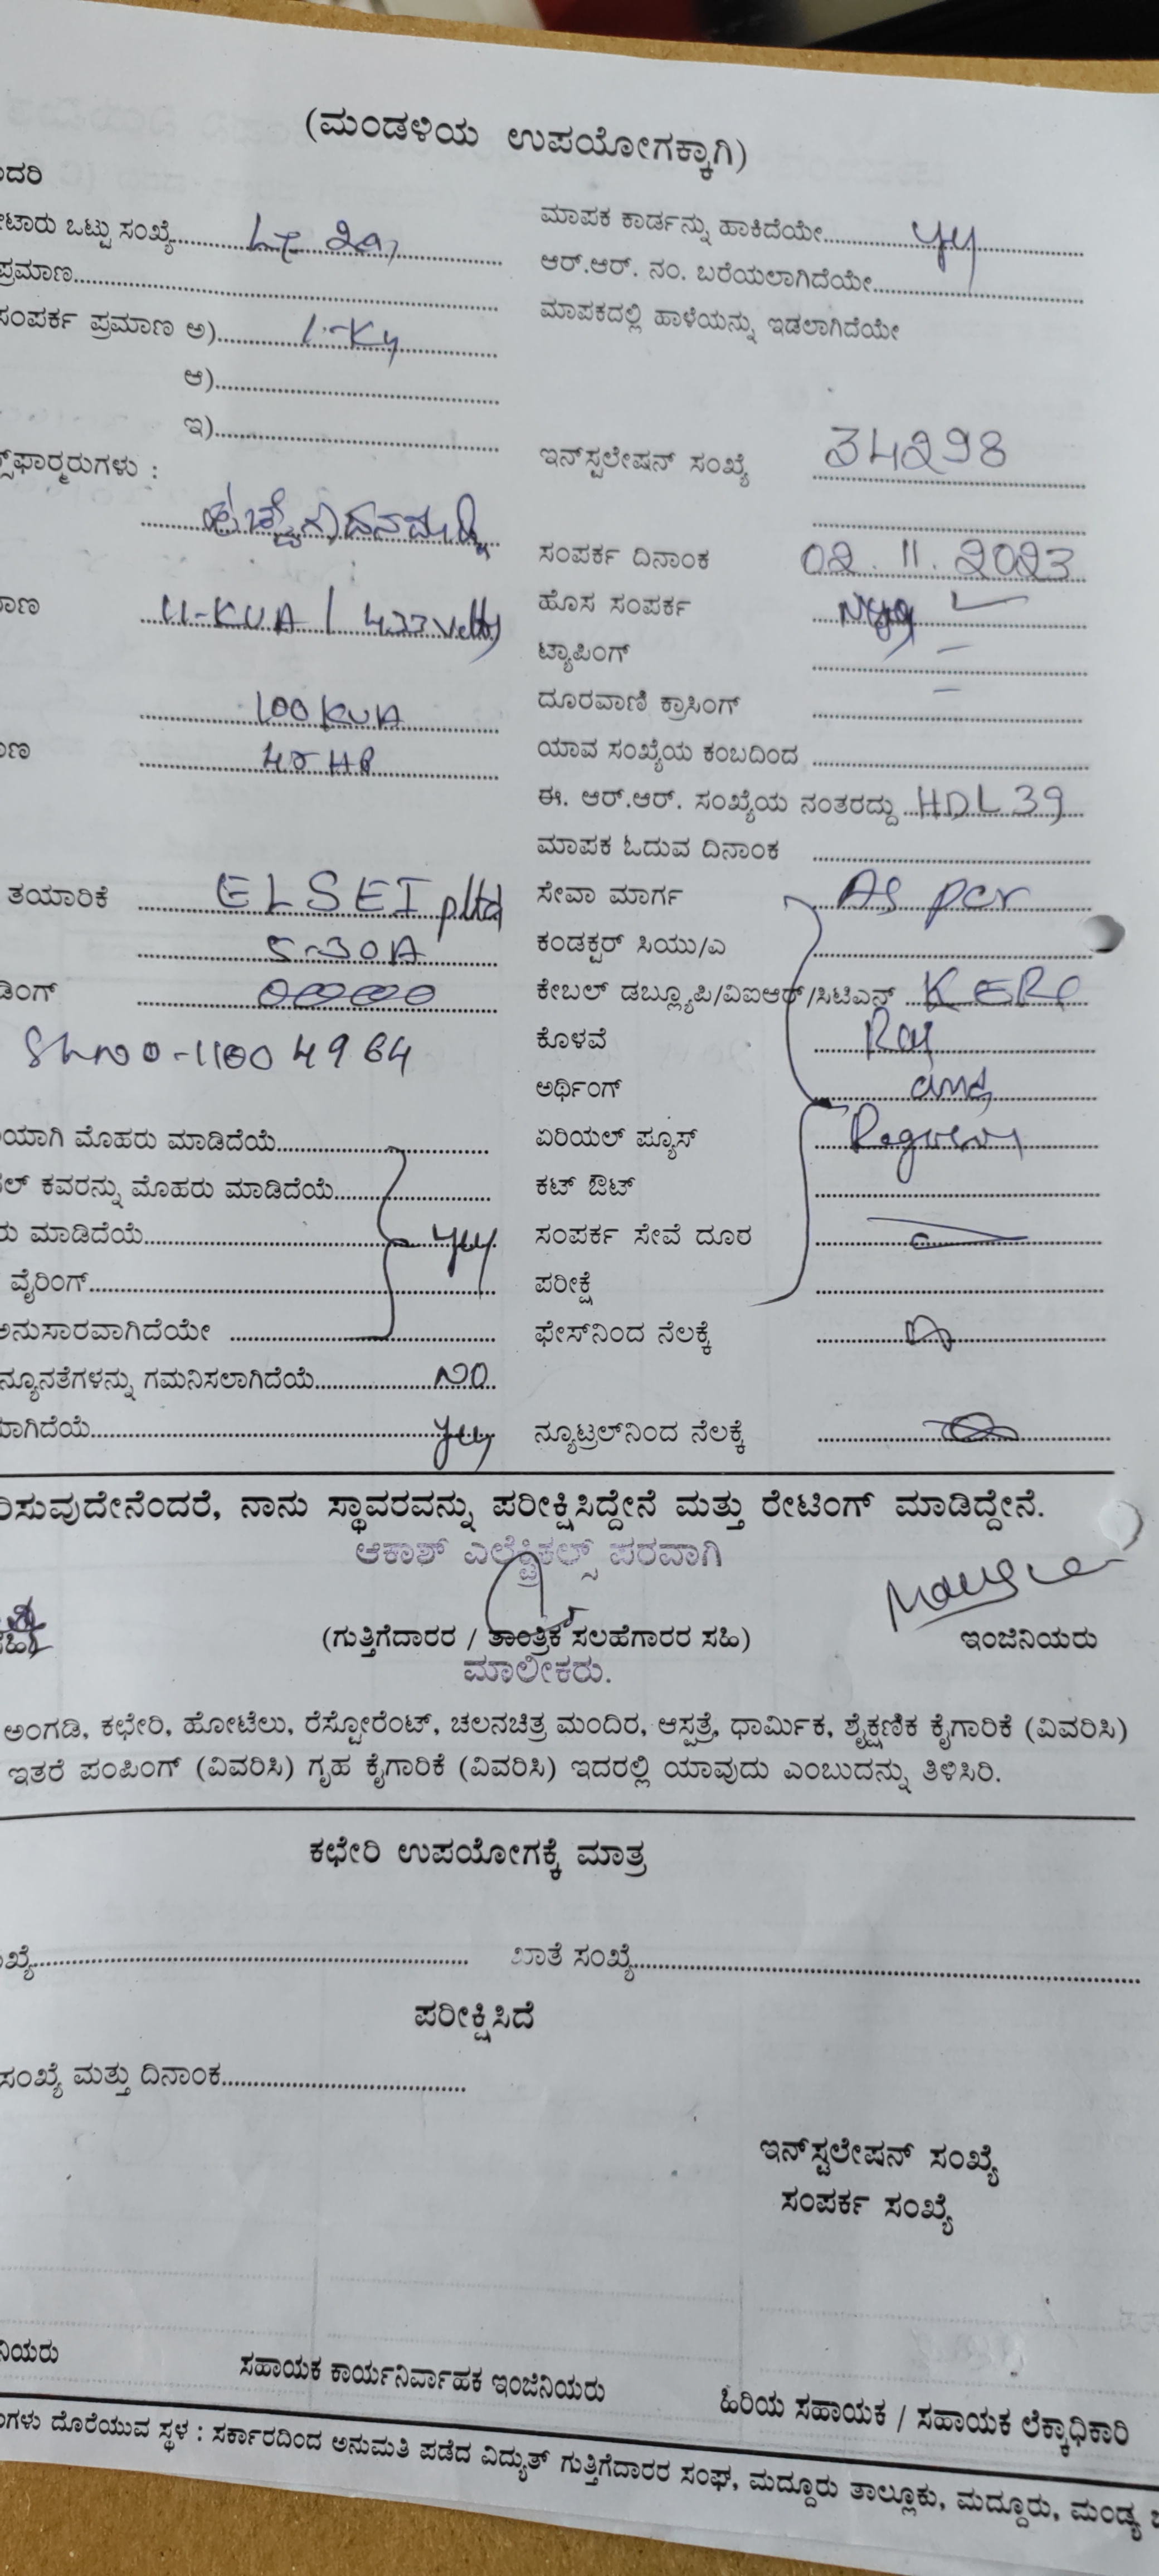 (ಮಂಡಳಿಯ ಉಪಯೋಗಕ್ಕಾಗಿ)
ದರಿ
ಟಾರು ಒಟ್ಟು ಸಂಖ್ಯೆ
ಮಾಪಕ ಕಾರ್ಡನ್ನು ಹಾಕಿದೆಯೇ
ಪ್ರಮಾಣ
ಆರ್.ಆರ್. ನಂ. ಬರೆಯಲಾಗಿದೆಯೇ
ಸಂಪರ್ಕ ಪ್ರಮಾಣ ಅ)
ಮಾಪಕದಲ್ಲಿ ಹಾಳೆಯನ್ನು ಇಡಲಾಗಿದೆಯೇ
ಆ)
ಇ)
ಫಾರ್‍ಮರುಗಳು :
ಇನ್‌ಸ್ಟಲೇಷನ್ ಸಂಖ್ಯೆ 34298
ಸಂಪರ್ಕ ದಿನಾಂಕ 02.11.2023
ಮಾಣ 11-KVA / 433 Volts
ಹೊಸ ಸಂಪರ್ಕ
ಟ್ಯಾಪಿಂಗ್ –
100 KVA
ದೂರವಾಣಿ ಕ್ರಾಸಿಂಗ್ –
ಯಾವ ಸಂಖ್ಯೆಯ ಕಂಬದಿಂದ
ಈ. ಆರ್.ಆರ್. ಸಂಖ್ಯೆಯ ನಂತರದ್ದು HDL 39
ಮಾಪಕ ಓದುವ ದಿನಾಂಕ
ತಯಾರಿಕೆ ELSEI pltd
ಸೇವಾ ಮಾರ್ಗ As per
5-30A
ಕಂಡಕ್ಟರ್ ಸಿಯು/ಎ
ಡಿಂಗ್ 00000
ಕೇಬಲ್ ಡಬ್ಲ್ಯೂಪಿ/ವಿಐಆರ್/ಸಿಟಿಎಸ್ KERC
ಕೊಳವೆ
ಅರ್ಥಿಂಗ್ and
ಯಾಗಿ ಮೊಹರು ಮಾಡಿದೆಯೆ
ಏರಿಯಲ್ ಪ್ಯೂಸ್
ಲ್ ಕವರನ್ನು ಮೊಹರು ಮಾಡಿದೆಯೆ
ಕಟ್ ಔಟ್
ರು ಮಾಡಿದೆಯೆ yes
ಸಂಪರ್ಕ ಸೇವೆ ದೂರ
ವೈರಿಂಗ್
ಪರೀಕ್ಷೆ
ಅನುಸಾರವಾಗಿದೆಯೇ
ಫೇಸ್‌ನಿಂದ ನೆಲಕ್ಕೆ
ನ್ಯೂನತೆಗಳನ್ನು ಗಮನಿಸಲಾಗಿದೆಯೆ NO
ಾಗಿದೆಯೆ yes
ನ್ಯೂಟ್ರಲ್‌ನಿಂದ ನೆಲಕ್ಕೆ
ರಿಸುವುದೇನೆಂದರೆ, ನಾನು ಸ್ಥಾವರವನ್ನು ಪರೀಕ್ಷಿಸಿದ್ದೇನೆ ಮತ್ತು ರೇಟಿಂಗ್ ಮಾಡಿದ್ದೇನೆ.
ಆಕಾಶ್ ಎಲೆಕ್ಟ್ರಿಕಲ್ಸ್ ಪರವಾಗಿ
(ಗುತ್ತಿಗೆದಾರರ / ತಾಂತ್ರಿಕ ಸಲಹೆಗಾರರ ಸಹಿ)
ಇಂಜಿನಿಯರು
ಮಾಲೀಕರು.
ಅಂಗಡಿ, ಕಛೇರಿ, ಹೋಟೆಲು, ರೆಸ್ಟೋರೆಂಟ್, ಚಲನಚಿತ್ರ ಮಂದಿರ, ಆಸ್ಪತ್ರೆ, ಧಾರ್ಮಿಕ, ಶೈಕ್ಷಣಿಕ ಕೈಗಾರಿಕೆ (ವಿವರಿಸಿ)
ಇತರೆ ಪಂಪಿಂಗ್ (ವಿವರಿಸಿ) ಗೃಹ ಕೈಗಾರಿಕೆ (ವಿವರಿಸಿ) ಇದರಲ್ಲಿ ಯಾವುದು ಎಂಬುದನ್ನು ತಿಳಿಸಿರಿ.
ಕಛೇರಿ ಉಪಯೋಗಕ್ಕೆ ಮಾತ್ರ
ಖ್ಯೆ ಖಾತೆ ಸಂಖ್ಯೆ
ಪರೀಕ್ಷಿಸಿದೆ
ಸಂಖ್ಯೆ ಮತ್ತು ದಿನಾಂಕ
ಇನ್‌ಸ್ಟಲೇಷನ್ ಸಂಖ್ಯೆ
ಸಂಪರ್ಕ ಸಂಖ್ಯೆ
ನಿಯರು
ಸಹಾಯಕ ಕಾರ್ಯನಿರ್ವಾಹಕ ಇಂಜಿನಿಯರು
ಹಿರಿಯ ಸಹಾಯಕ / ಸಹಾಯಕ ಲೆಕ್ಕಾಧಿಕಾರಿ
ಗಳು ದೊರೆಯುವ ಸ್ಥಳ : ಸರ್ಕಾರದಿಂದ ಅನುಮತಿ ಪಡೆದ ವಿದ್ಯುತ್ ಗುತ್ತಿಗೆದಾರರ ಸಂಘ, ಮದ್ದೂರು ತಾಲ್ಲೂಕು, ಮದ್ದೂರು, ಮಂಡ್ಯ